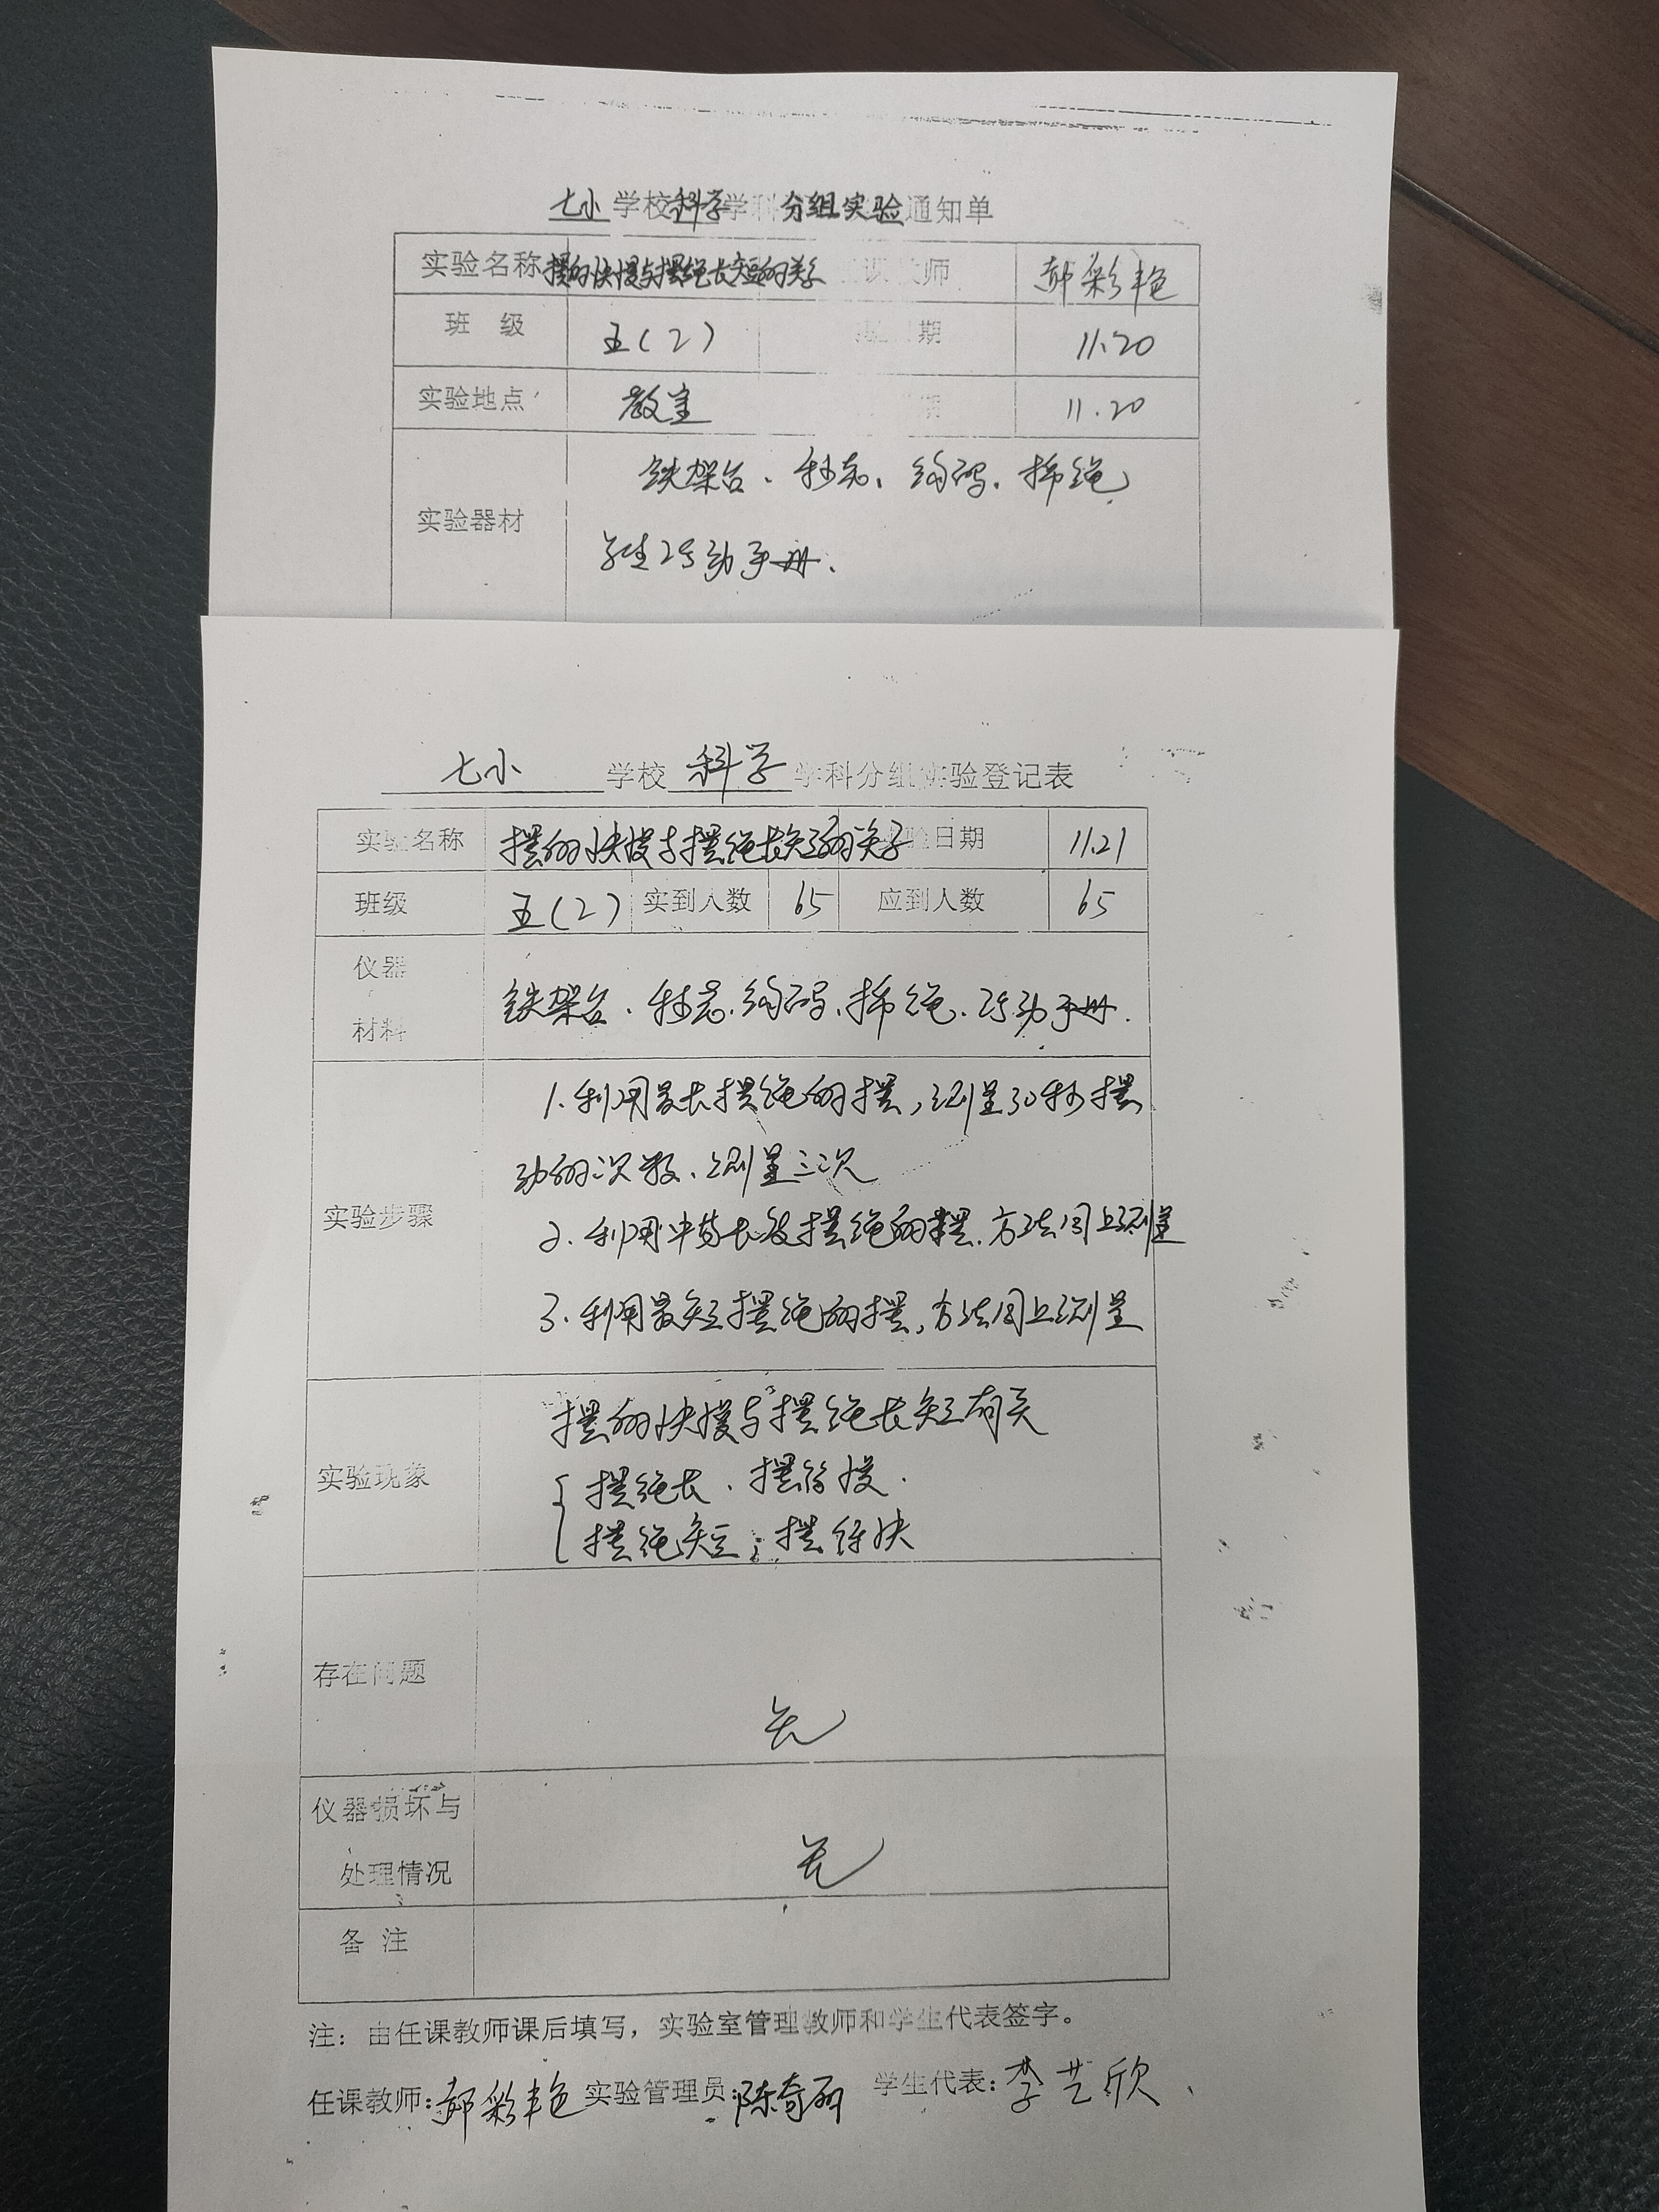 七小 学校 科学 学科 分组实验 通知单
实验名称 摆的快慢与摆绳长短的关系 课 师 郝彩艳
班 级 五(2) 期 11.20
实验地点 教室 期 11.20
铁架台、秒表、钩码、棉绳
实验器材
学生活动手册.
七小 学校 科学 学科分组实验登记表
实验名称 摆的快慢与摆绳长短的关系 验日期 11.21
班级 五(2) 实到人数 65 应到人数 65
仪器
铁架台、秒表、钩码、棉绳、活动手册.
材料
1.利用最长摆绳的摆,测量30秒摆
动的次数、测量三次
实验步骤
2.利用中等长度摆绳的摆.方法同上测量
3.利用最短摆绳的摆,方法同上测量
摆的快慢与摆绳长短有关
实验现象
摆绳长、摆得慢.
摆绳短;摆得快
存在问题
无
仪器损坏与
无
处理情况
备 注
注:由任课教师课后填写,实验室管理教师和学生代表签字。
任课教师:郝彩艳 实验管理员:陈奇丽 学生代表:李艺欣